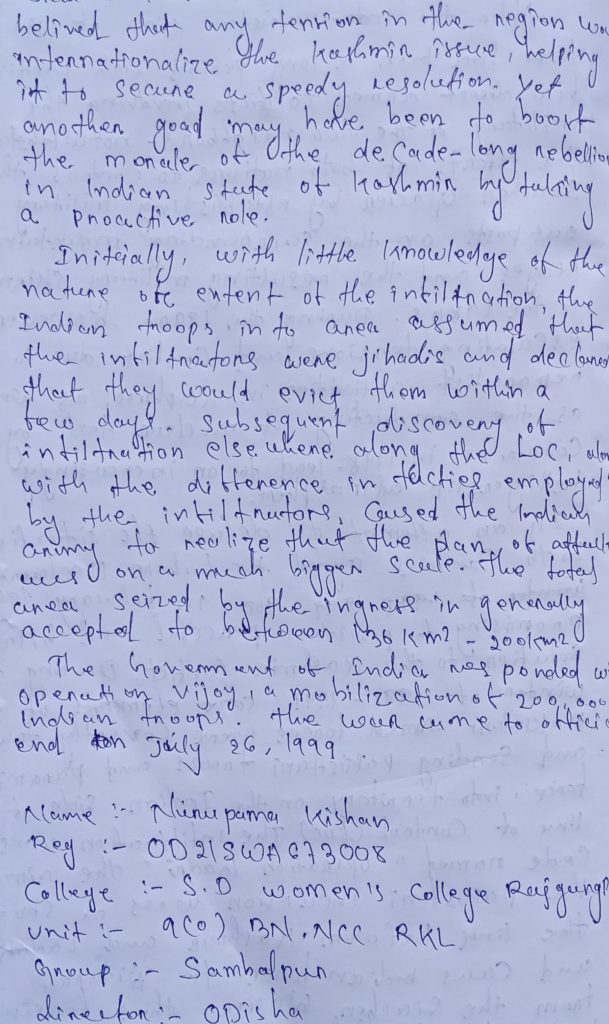 belived that any tension in the region wou
internationalize the kashmir issue, helping
it to secure a speedy resolution. Yet
another goad may have been to boost
the morale of the decade-long rebellion
in Indian state of Kashmir by taking
a proactive role.
Initcially, with little knowledge of the
nature of extent of the infiltration, the
Indian troops in to area assumed that
the infiltrators were jihadis and declared
that they would evict them within a
few days. Subsequent discovery of
infiltration elsewhere along the LOC, alon
with the difference in tactics employed
by the infiltrators, caused the Indian
army to realize that the plan of attack
was on a much bigger scale. The total
area seized by the ingress in generally
accepted to between 130 km2 - 200km2
The Government of India responded wi
operation vijoy, a mobilization of 200,000
Indian troops. The war came to officia
end on July 26, 1999.
Name :- Nirupama Kishan
Reg :- OD21SWA673008
College :- S.D women's college Rajgangp
Unit :- 9(O) BN. NCC RKL
Group :- Sambalpur
directon :- ODisha